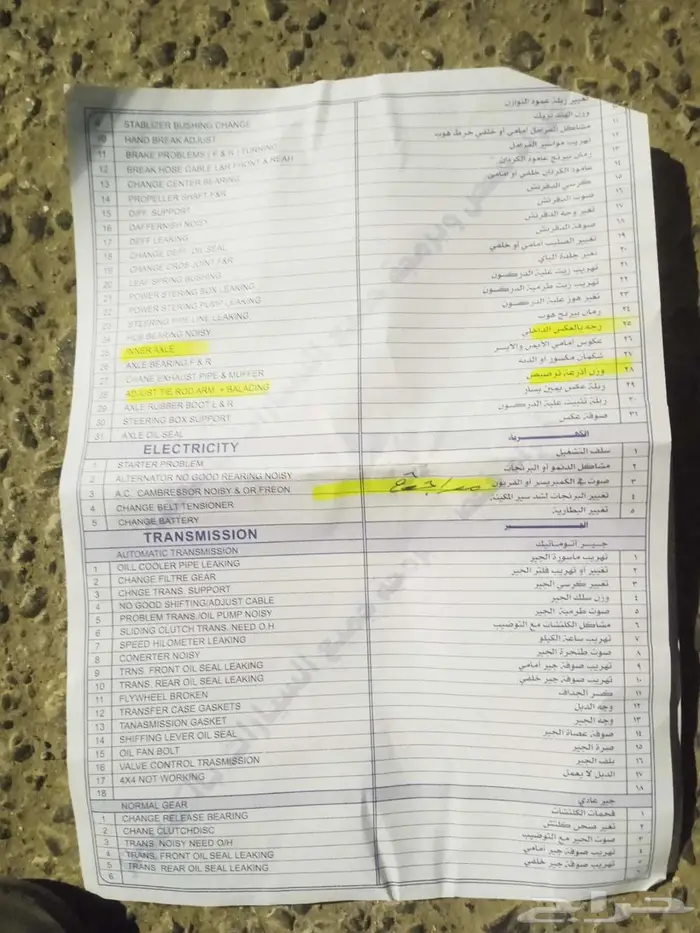 تغيير ربلة عمود التوازن
9 STABLIZER BUSHING CHANGE وزن الهند بريك ١١
10 HAND BREAK ADJUST مشاكل الفرامل امامي أو خلفي خرط هوب ١٢
11 BRAKE PROBLEMS ( F & R ) TUNNING تهريب مواسير الفرامل ١٣
12 BREAK HOSE CABLE L&R FRONT & REAR رمان بيرنج عامود الكردان ١٤
13 CHANGE CENTER BEARING عامود الكردان خلفي أو امامي ١٥
14 PROPELLER SHAFT F&R كرسي الدفرنش ١٦
15 DIFF SUPPORT صوت الدفرنش ١٧
16 DAFFERNISH NOISY تغير وجه الدفرنش ١٨
17 DEFF LEAKING صوفة الدفرنش ١٩
18 CHANGE DEFF. OIL SEAL تغيير الصليب امامي أو خلفي ٢٠
19 CHANGE CROS JOINT F&R تغير جلدة الياي ٢١
20 LEAF SPRING BUSHING تهريب زيت علبة الدركسون ٢٢
21 POWER STERING BOX LEAKING تهريب زيت طرمبة الدركسون ٢٣
22 POWER STERING PUMP LEAKING تغير هوز علبة الدركسون
23 STEERING PIPE LINE LEAKING رمان بيرنج هوب ٢٤
24 HUB BEARING NOISY رجه بالعكس الداخلي ٢٥
25 INNER AXLE عكوس امامي الأيمن والايسر ٢٦
26 AXLE BEARING F & R شكمان مكسور أو الدبة ٢٧
27 CHANE EXHAUST PIPE & MUFFER وزن أذرعة ترصيص ٢٨
28 ADJUST TIE ROD ARM. + BALACING ربلة عكس يمين يسار ٢٩
29 AXLE RUBBER BOOT L & R ربلة تثبيت علبة الدركسون ٣٠
30 STEERING BOX SUPPORT صوفة عكس ٣١
31 AXLE OIL SEAL
ELECTRICITY الكهرباء
1 STARTER PROBLEM سلف التشغيل ١
2 ALTERNATOR NO GOOD REARING NOISY مشاكل الدنمو أو البرنجات ٢
3 A.C. CAMBRESSOR NOISY & OR FREON صوت في الكمبريسر أو الفريون ٣
4 CHANGE BELT TENSIONER تغيير البرنجات لشد سير المكينة ٤
5 CHANGE BATTERY تغيير البطارية ٥
TRANSMISSION الجير
AUTOMATIC TRANSMISSION جير اتوماتيك
1 OILL COOLER PIPE LEAKING تهريب ماسورة الجير ١
2 CHANGE FILTRE GEAR تغيير أو تهريب فلتر الجير ٢
3 CHNGE TRANS. SUPPORT تغيير كرسي الجير ٣
4 NO GOOD SHIFTING/ADJUST CABLE وزن سلك الجير ٤
5 PROBLEM TRANS./OIL PUMP NOISY صوت طرمبة الجير ٥
6 SLIDING CLUTCH TRANS. NEED O.H مشاكل الكلتشات مع التوضيب ٦
7 SPEED HILOMETER LEAKING تهريب ساعة الكيلو ٧
8 CONERTER NOISY صوت طنجرة الجير ٨
9 TRNS. FRONT OIL SEAL LEAKING تهريب صوفة جير أمامي ٩
10 TRANS. REAR OIL SEAL LEAKING تهريب صوفة جير خلفي ١٠
11 FLYWHEEL BROKEN كسر الحداف ١١
12 TRANSFER CASE GASKETS وجه الدبل ١٢
13 TANASMISSION GASKET وجه الجير ١٣
14 SHIFFING LEVER OIL SEAL صوفة عصاة الجير ١٤
15 OIL FAN BOLT صرة الجير ١٥
16 VALVE CONTROL TRASMISSION بلف الجير ١٦
17 4X4 NOT WORKING الدبل لا يعمل ١٧
18 ١٨
NORMAL GEAR جير عادي
1 CHANGE RELEASE BEARING فحمات الكلتشات ١
2 CHANE CLUTCHDISC تغير صحن كلتش ٢
3 TRANS. NOISY NEED O/H صوت الجير مع التوضيب ٣
4 TRANS. FRONT OIL SEAL LEAKING تهريب صوفة جير أمامي ٤
5 TRANS REAR OIL SEAL LEAKING تهريب صوفة جير خلفي ٥
6 ٦
حراج